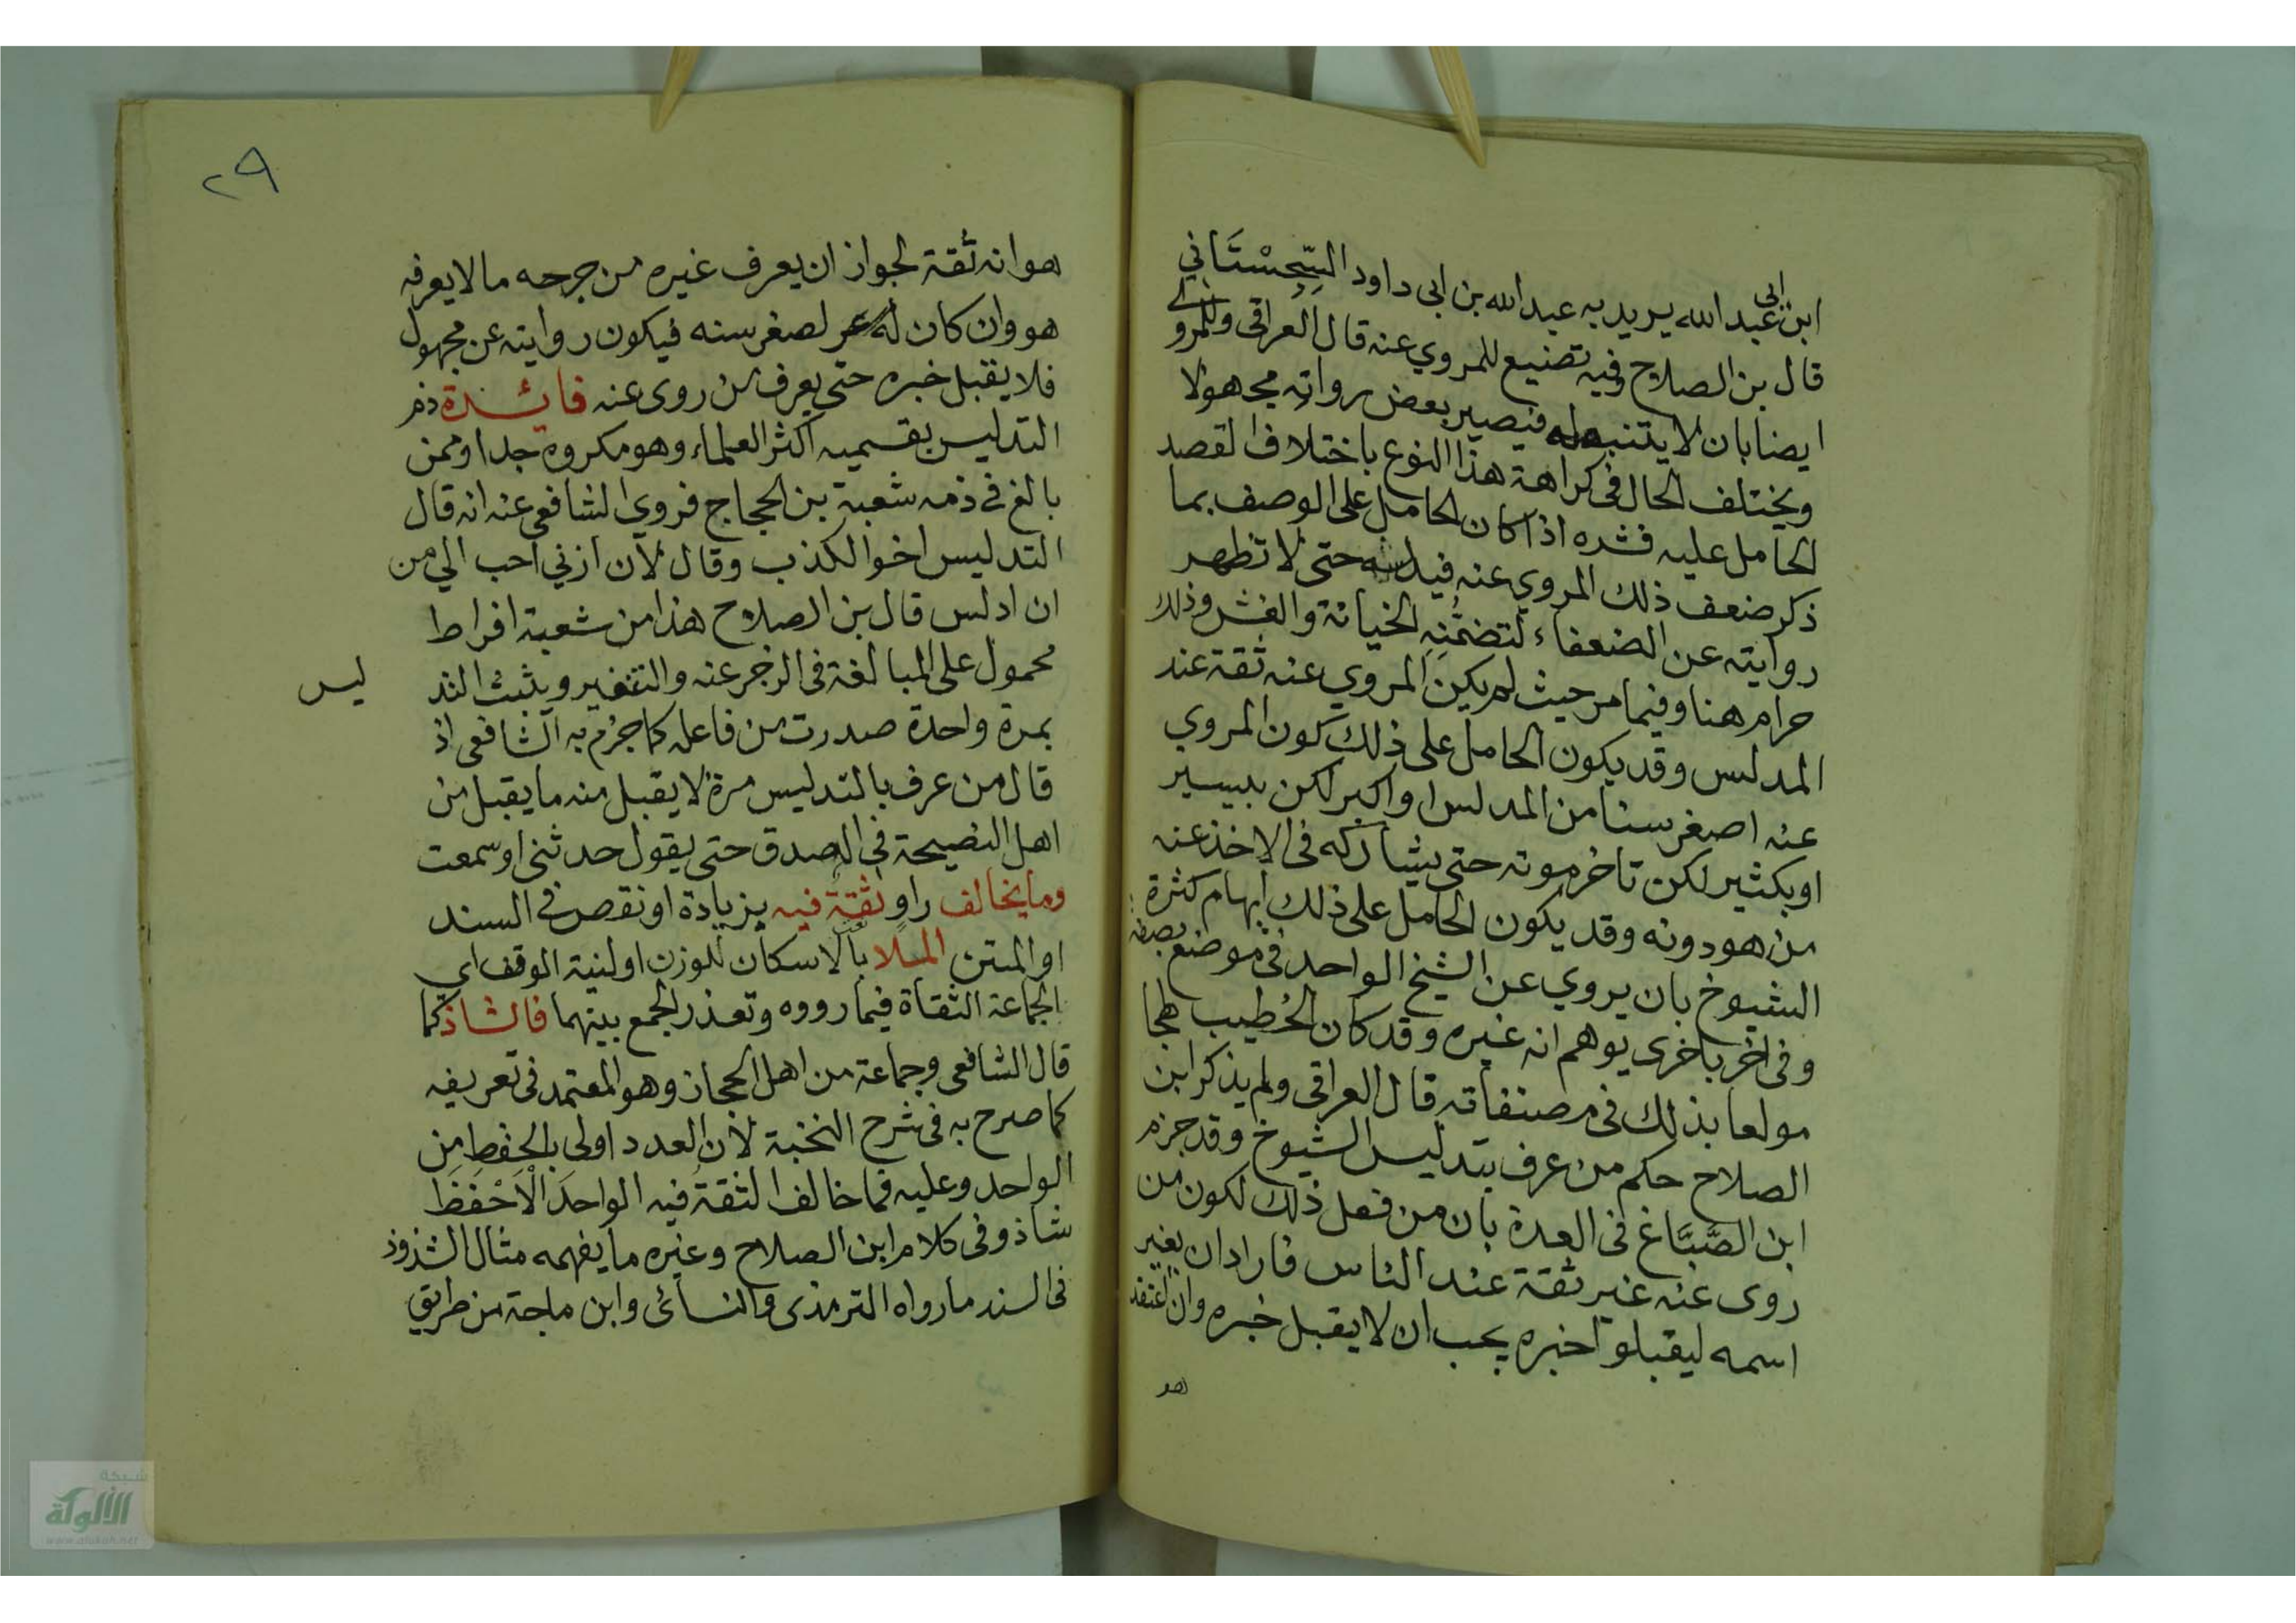 ابن ابي عبدالله يريد به عبدالله بن ابى داود السِّجِسْتَاني
قال بن الصلاح وفيه تضييع للمروي عنه قال العراقى وللمروي
ايضا بان لا يتنبه له فيصير بعض رواته مجهولا
ويختلف الحال فى كراهة هذا النوع باختلاف القصد
الحامل عليه فشره اذا كان الحامل على الوصف بما
ذكر ضعف ذلك المروي عنه فيدلسه حتى لا تظهر
روايته عن الضعفاء لتضمُّنِهِ الخيانة والغش وذلك
حرام هنا وفيما مر حيث لم يكن المروي عنه ثقة عند
المدلس وقد يكون الحامل على ذلك كون المروي
عنه اصغر سنا من المدلس او اكبر لكن بيسير
او بكثير لكن تاخر موته حتى يشاركه فى الاخذ عنه
من هو دونه وقد يكون الحامل على ذلك ايهام كثرة
الشيوخ بان يروي عن الشيخ الواحد فى موضع بصفة
وفى اخر باخرى يوهم انه غيره وقد كان الخطيب لهجا
مولعا بذلك فى مصنفاته قال العراقى ولم يذكر ابن
الصلاح حكم من عرف بتدليس الشيوخ وقد جزم
ابن الصَّبَّاغ فى العدة بان من فعل ذلك لكون من
روى عنه غير ثقة عند الناس فاراد ان يغير
اسمه ليقبلوا خبره يجب ان لا يقبل خبره وان اعتقد
هو
٢٩
هو انه ثقة لجواز ان يعرف غيره من جرحه ما لا يعرفه
هو وان كان لصغر سنه فيكون رواية عن مجهول
فلا يقبل خبره حتى يعرف من روى عنه فائدة ذم
التدليس بقسميه اكثر العلماء وهو مكروه جدا وممن
بالغ فى ذمه شعبة بن الحجاج فروى الشافعى عنه انه قال
التدليس اخو الكذب وقال لأن ازني احب الي من
ان ادلس قال بن الصلاح هذا من شعبة افراط
محمول على المبالغة فى الزجر عنه والتنفير ويثبت التد
ليس
بمرة واحدة صدرت من فاعله كما جزم به الشافعى اذ
قال من عرف بالتدليس مرة لا يقبل منه ما يقبل من
اهل النصيحة فى الصدق حتى يقول حدثنى او سمعت
وما يخالف راو ثقةٌ فيه بزيادة او نقص فى السند
او المتن الملا بالاسكان للوزن او لنية الوقف اي
الجماعة الثقاة فيما رووه وتعذر الجمع بينهما فالشاذ كما
قال الشافعى وجماعة من اهل الحجاز وهو المعتمد فى تعريفه
كما صرح به فى شرح النخبة لأن العدد اولى بالحفظ من
الواحد وعليه فما خالف الثقةُ فيه الواحدَ الْاَحْفَظَ
شاذ وفى كلام ابن الصلاح وغيره ما يفهمه مثال الشذوذ
فى السند ما رواه الترمذى والنسائى وابن ماجة من طريق
شبكة
الألوكة
www.alukah.net